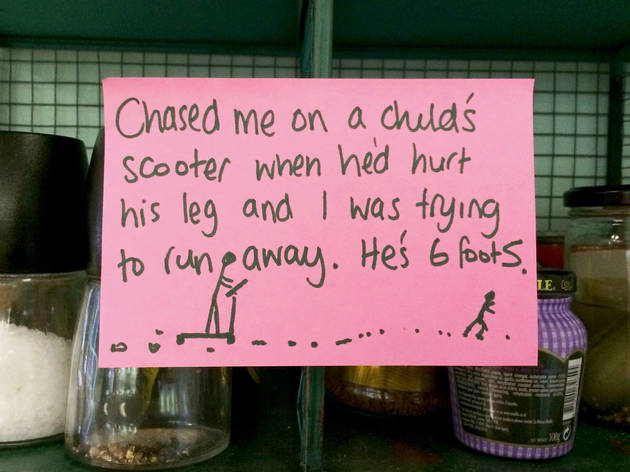 Chased me on a child's
scooter when he'd hurt
his leg and I was trying
to run away. He's 6 foot 5.
LE.
100g